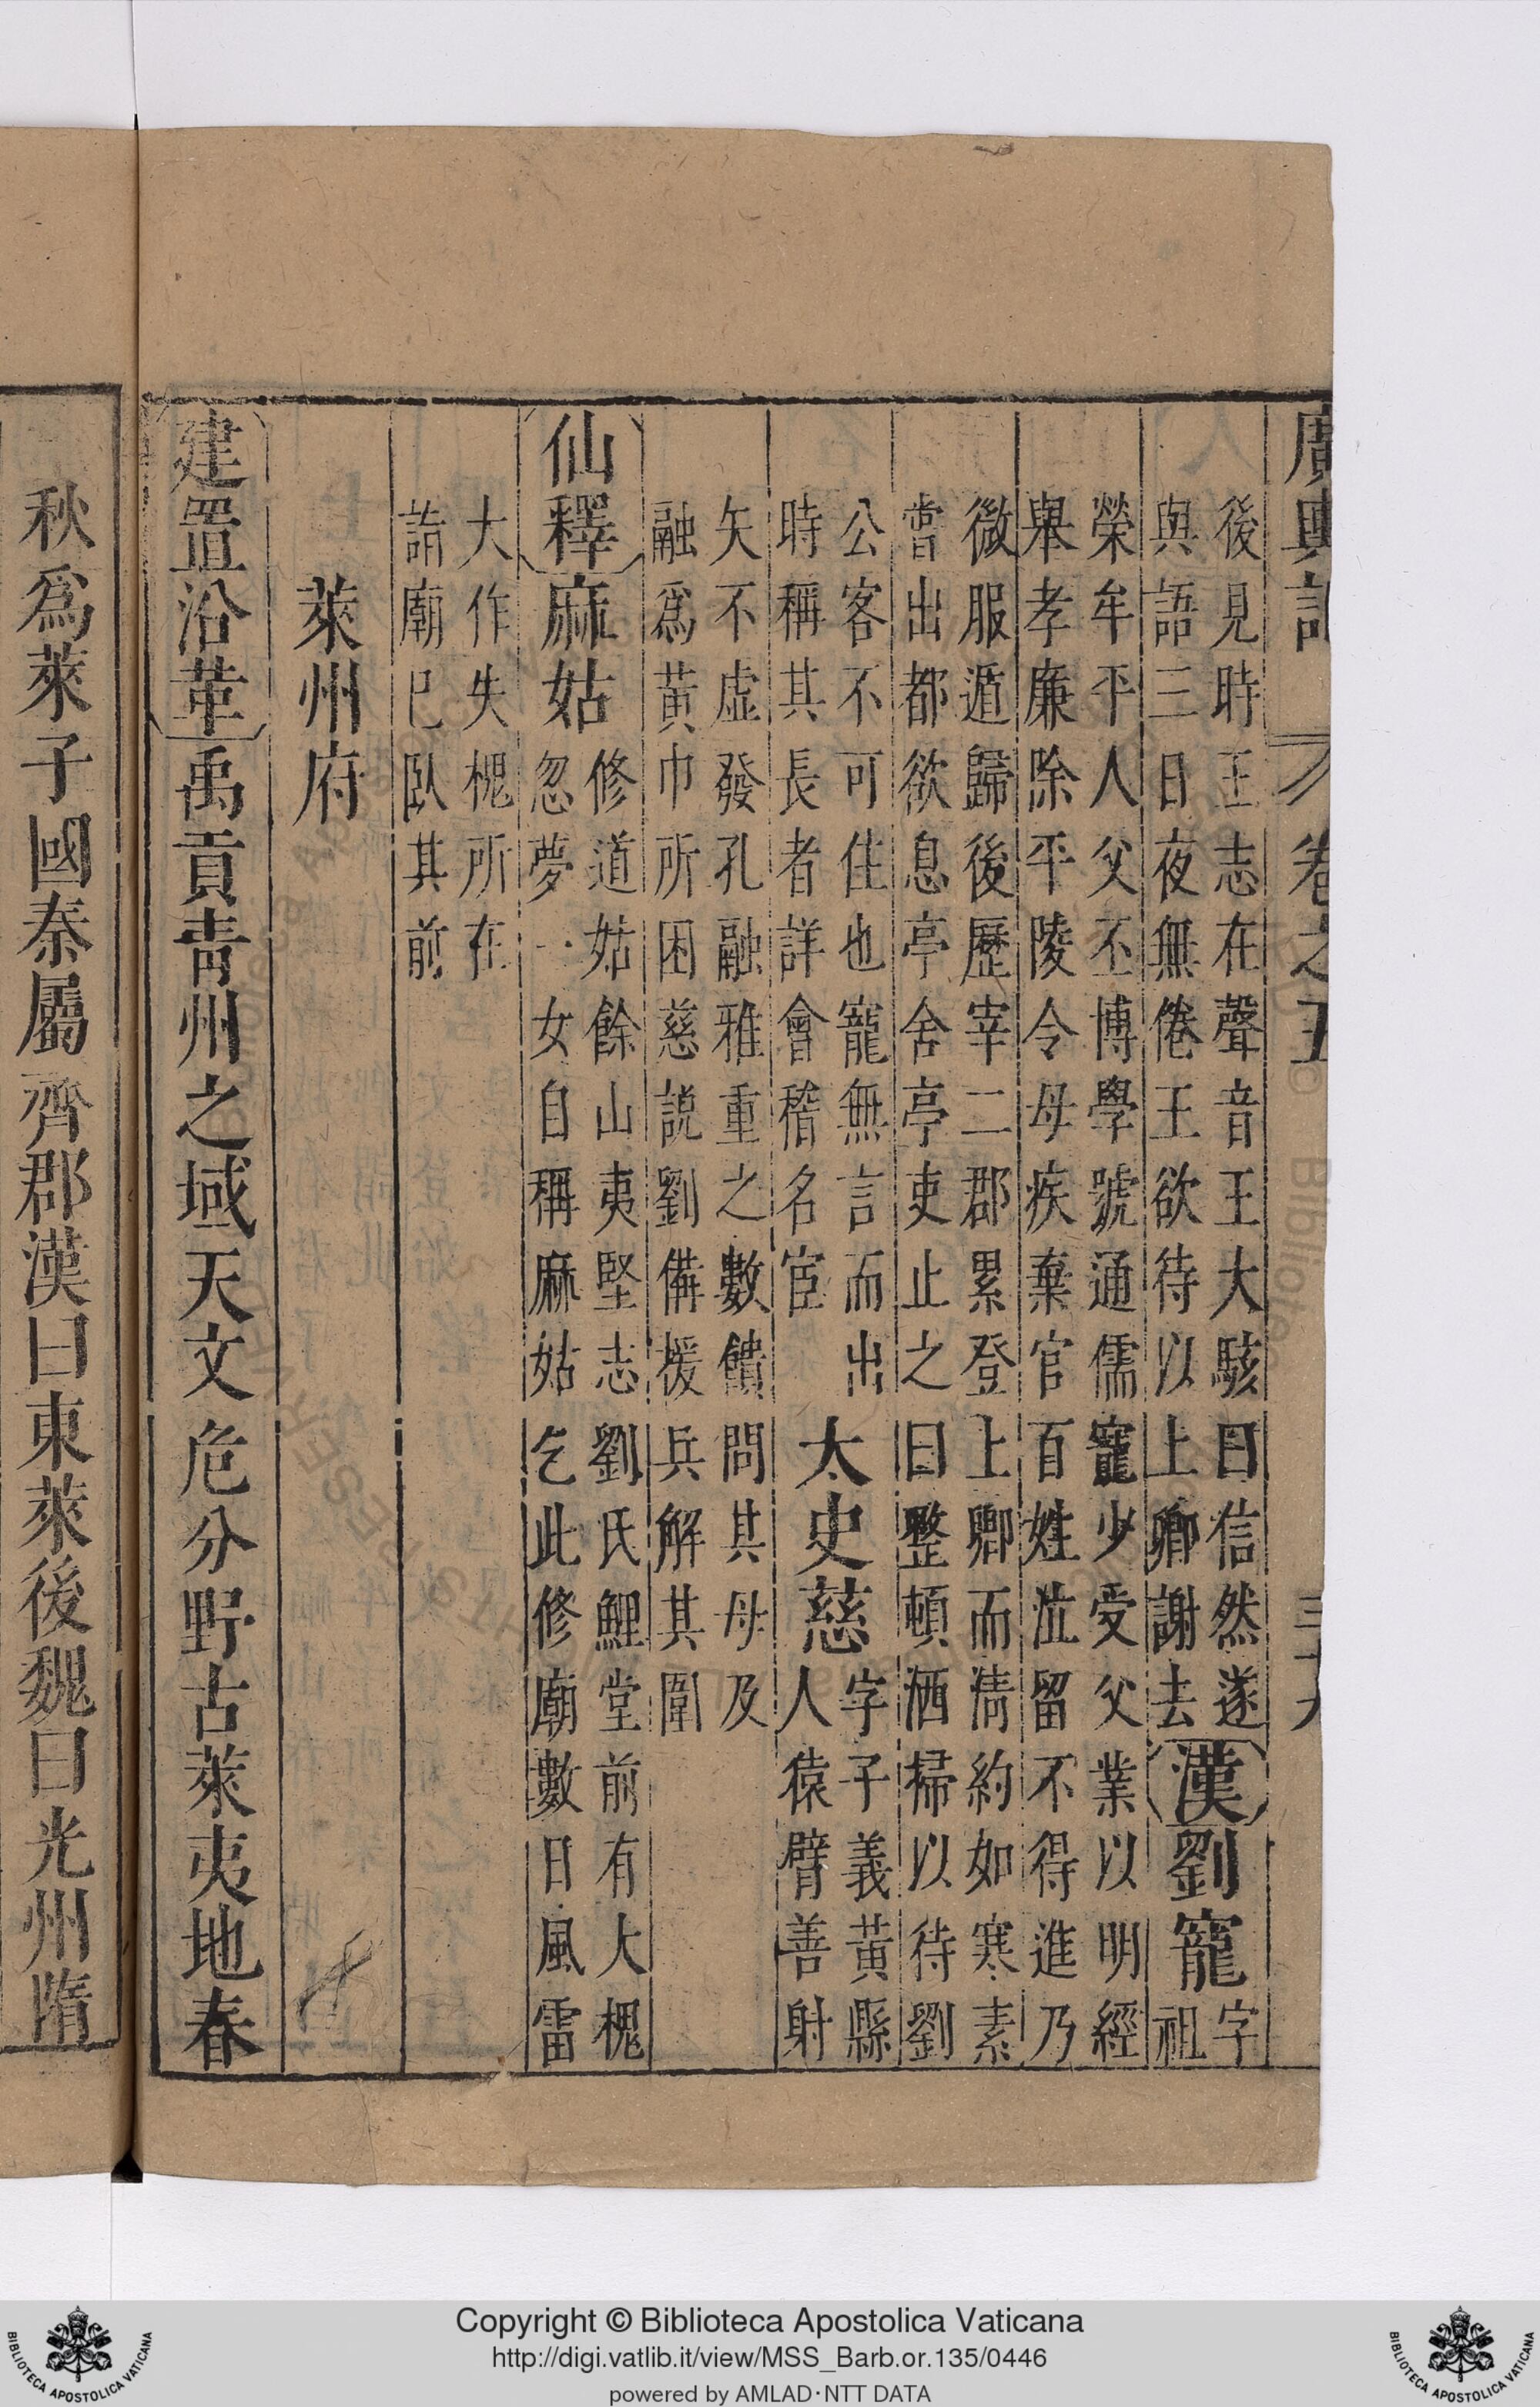 廣輿記 卷之五
後見時王志在聲音王大駭曰信然遂
與語三日夜無倦王欲待以上卿謝去漢劉寵字
祖
榮牟平人父丕博學號通儒寵少受父業以明經
舉孝廉除平陵令母疾棄官百姓泣留不得進乃
微服遁歸後歷宰二郡累登上卿而清約如寒素
嘗出都欲息亭舍亭吏止之曰整頓洒掃以待劉
公客不可住也寵無言而出
時稱其長者詳會稽名宦
太史慈字子義黃縣
人猿臂善射
矢不虛發孔融雅重之數饋問其母及
融爲黃巾所困慈説劉備援兵解其圍
仙釋麻姑修道姑餘山夷堅志劉氏鯉堂前有大槐
忽夢一女自稱麻姑乞此修廟數日風雷
大作失槐所在
詣廟巳臥其前
萊州府
建置沿革禹貢青州之域天文危分野古萊夷地春
秋爲萊子國秦屬齊郡漢曰東萊後魏曰光州隋
BIBLIOTECA APOSTOLICA VATICANA
Copyright © Biblioteca Apostolica Vaticana
http://digi.vatlib.it/view/MSS_Barb.or.135/0446
powered by AMLAD·NTT DATA
BIBLIOTECA APOSTOLICA VATICANA